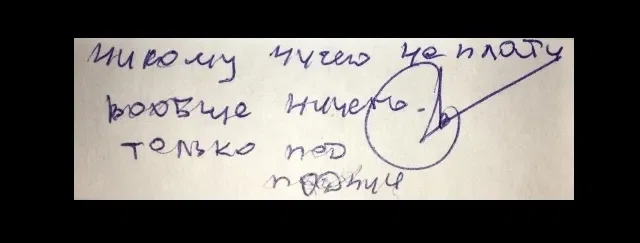 никому нучего не плати
вообще ничего.
только под
подпис